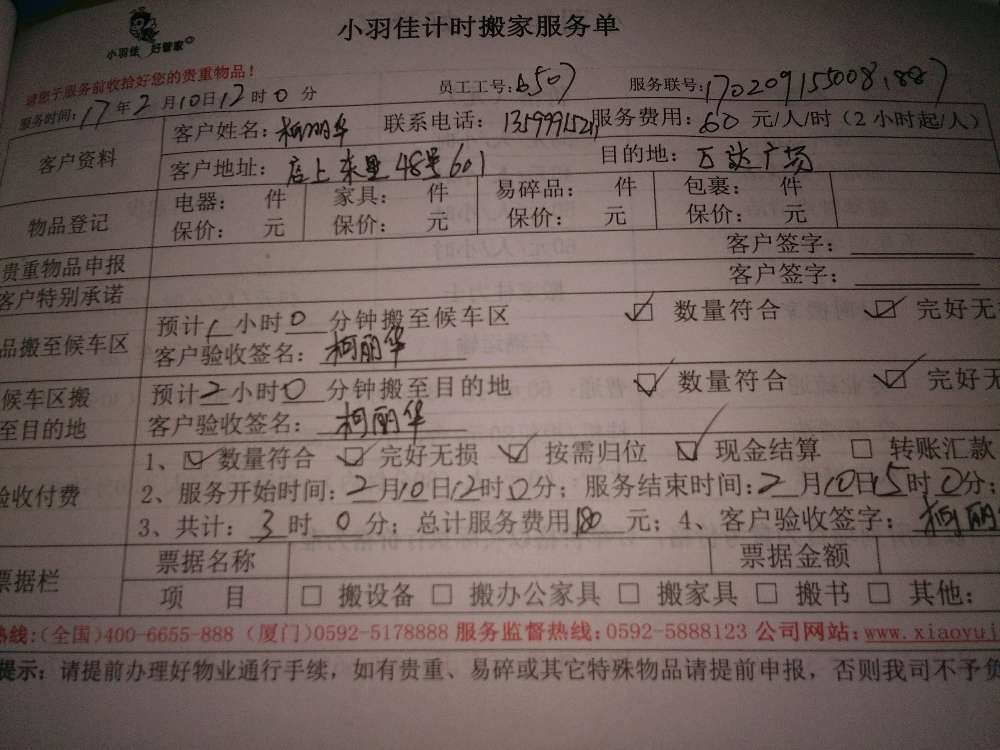 小羽佳计时搬家服务单
小羽佳 好管家
请您于服务前收拾好您的贵重物品！
员工工号：6507 服务联号：170209155008887
服务时间：17年2月10日12时0分
客户资料 客户姓名：柯丽华 联系电话： 服务费用：60元/人/时（2小时起/人）
客户地址：店上东里48号601 目的地：万达广场
物品登记 电器： 件 家具： 件 易碎品： 件 包裹： 件
保价： 元 保价： 元 保价： 元 保价： 元
贵重物品申报 客户签字：
客户特别承诺 客户签字：
品搬至候车区 预计1小时0分钟搬至候车区 ☑ 数量符合 ☑ 完好无
客户验收签名：柯丽华
候车区搬 预计2小时0分钟搬至目的地 ☑ 数量符合 ☑ 完好无
至目的地 客户验收签名：柯丽华
验收付费 1、☑数量符合 ☑ 完好无损 ☑ 按需归位 ☑ 现金结算 □ 转账汇款
2、服务开始时间：2月10日12时0分；服务结束时间：2月10日15时0分；
3、共计：3时0分；总计服务费用180元；4、客户验收签字：柯丽
票据栏 票据名称 票据金额
项 目 □ 搬设备 □ 搬办公家具 □ 搬家具 □ 搬书 □ 其他：
热线:(全国)400-6655-888 (厦门)0592-5178888 服务监督热线:0592-5888123 公司网站:www.xiaoyuj
提示：请提前办理好物业通行手续，如有贵重、易碎或其它特殊物品请提前申报，否则我司不予负